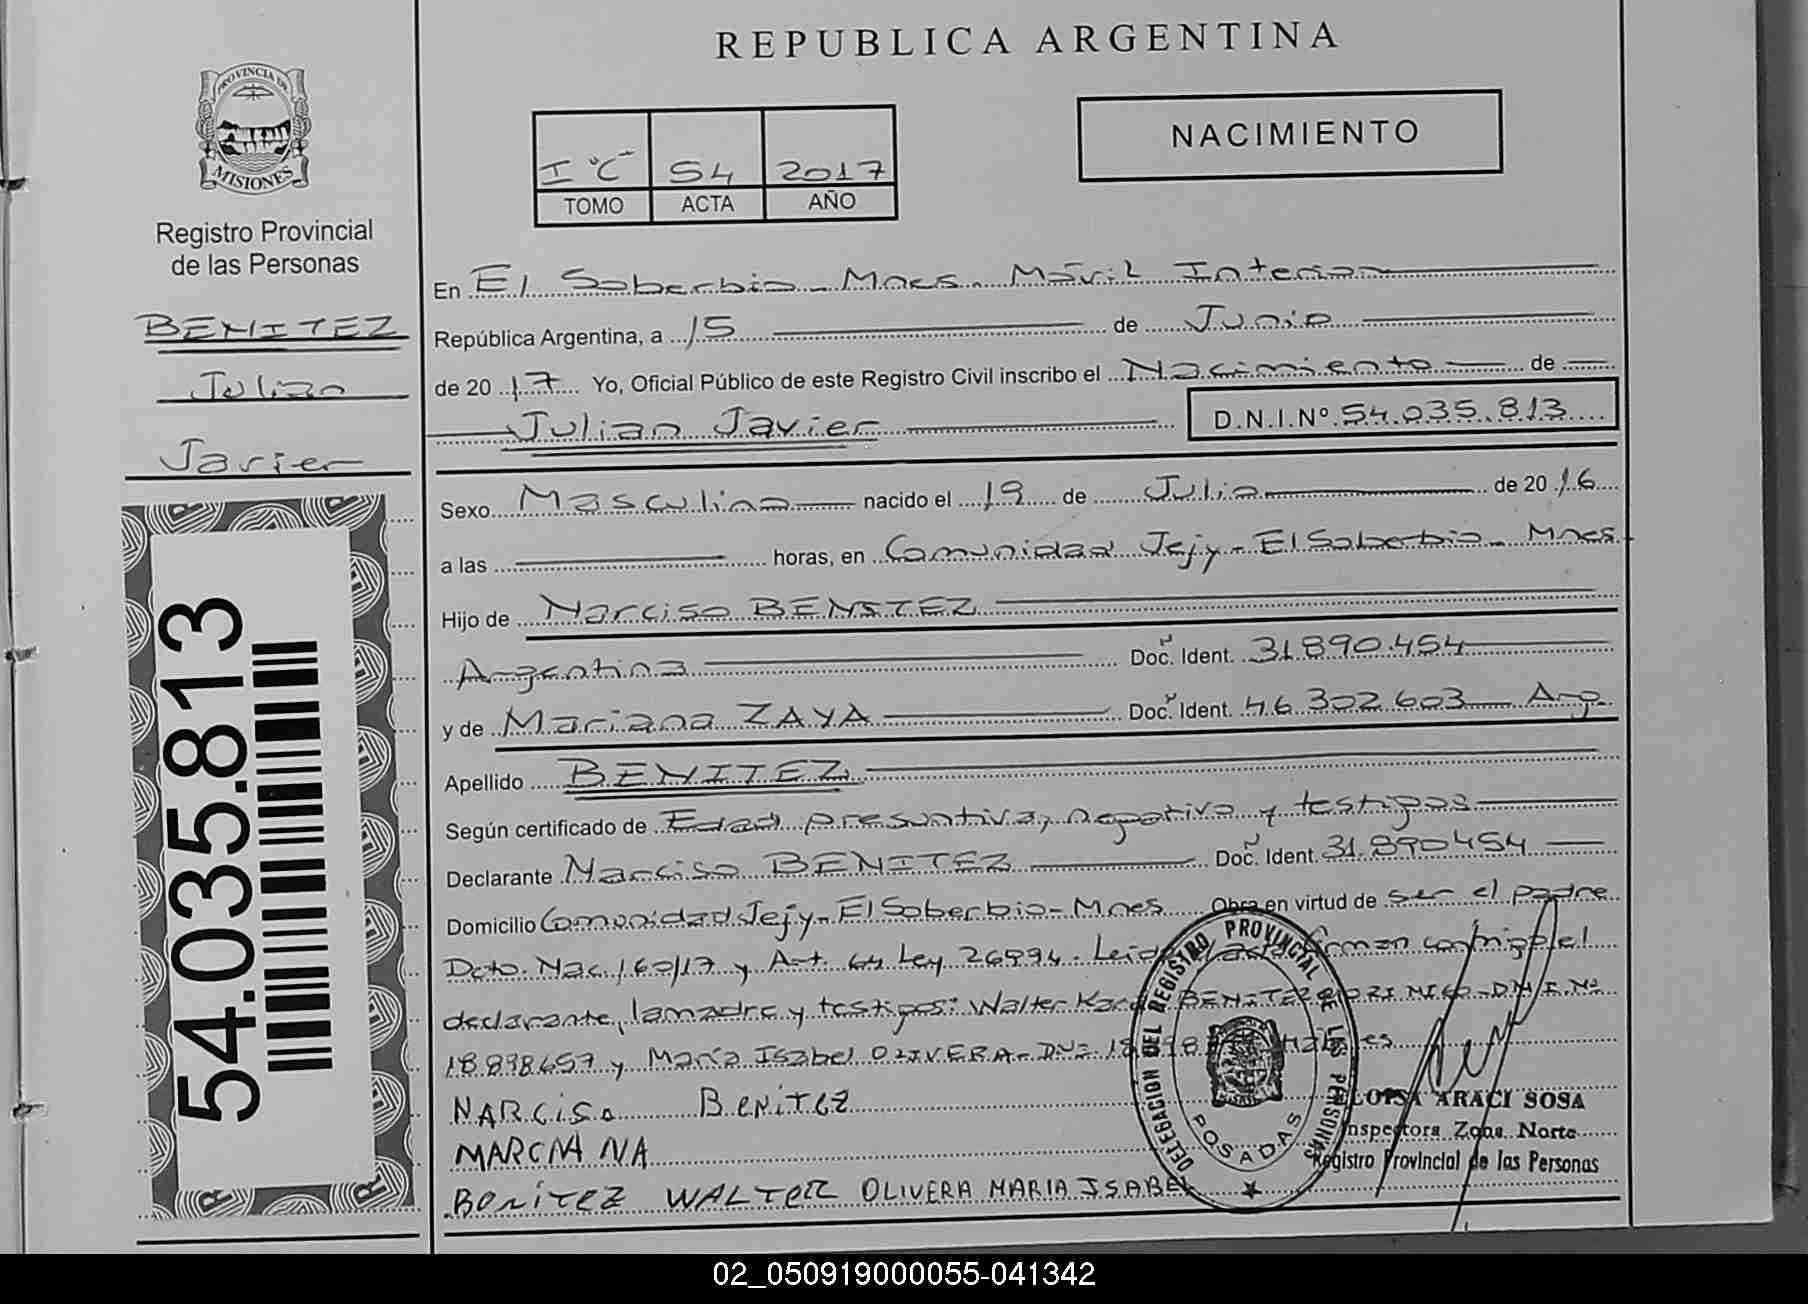 REPUBLICA ARGENTINA
PROVINCIA DE
MISIONES
Registro Provincial
de las Personas
BENITEZ
Julian
Javier
54.035.813
I "C" 54 2017
TOMO ACTA AÑO
NACIMIENTO
En El Soberbio - Mnes. Móvil Interior
República Argentina, a 15 de Junio
de 2017 Yo, Oficial Público de este Registro Civil inscribo el Nacimiento de
Julian Javier D.N.I.Nº 54.035.813
Sexo Masculino nacido el 19 de Julio de 2016
a las horas, en Comunidad Jejy - El Soberbio - Mnes
Hijo de Narciso BENITEZ
Argentina Doc. Ident. 31.890.454
y de Mariana ZAYA Doc. Ident. 46.302.603 Arg.
Apellido BENITEZ
Según certificado de Edad presuntiva, negativa y testigos
Declarante Narciso BENITEZ Doc. Ident. 31.890454
Domicilio Comunidad Jejy - El Soberbio - Mnes Obra en virtud de ser el padre
Dcto. Nac. 160/17 y Art. 64 Ley 26994. Leida el acta firman conmigo el
declarante, la madre y testigos: Walter BENITEZ D.N.I.Nº
18.898.657 y María Isabel OLIVERA - DNI: 18.
NARCISO BENITEZ
MARCIANA
BENITEZ WALTER OLIVERA MARIA ISABEL
DELEGACION DEL REGISTRO PROVINCIAL DE LAS PERSONAS
POSADAS
LOISA ARACI SOSA
Inspectora Zona Norte
Registro Provincial de las Personas
02_050919000055-041342